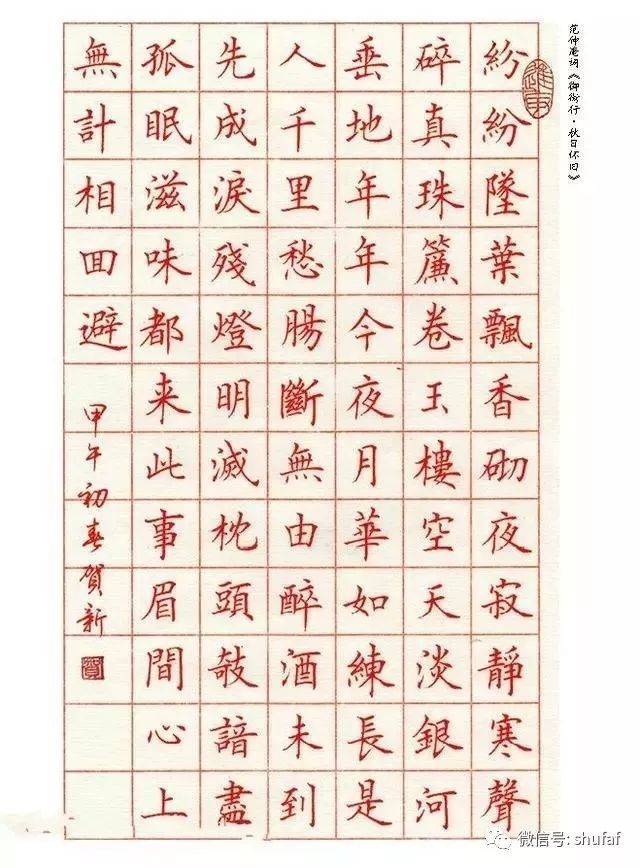 范仲淹词《御街行·秋日怀旧》
紛紛墜葉飄香砌夜寂靜寒聲
碎真珠簾卷玉樓空天淡銀河
垂地年年今夜月華如練長是
人千里愁腸斷無由醉酒未到
先成淚殘燈明滅枕頭敧諳盡
孤眠滋味都来此事眉間心上
無計相回避
甲午初春賀新
微信号: shufaf